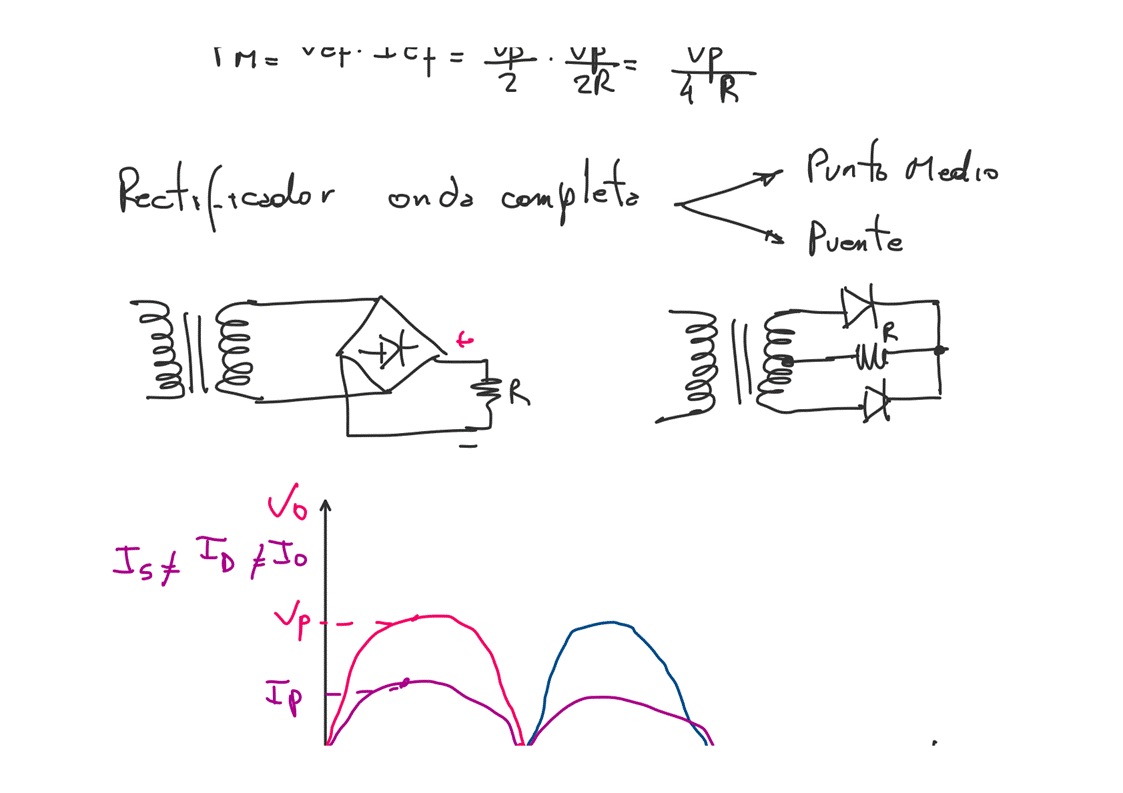 = Vp/2 · Vp/2R = Vp/4R
Rectificador onda completa
Punto Medio
Puente
+
R
−
R
Vo
Is ≠ ID ≠ Io
Vp
Ip